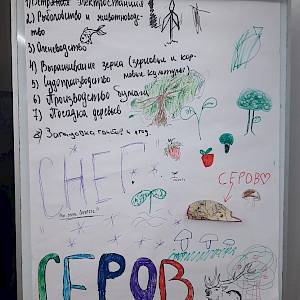 2) Рыболовство и животноводс-
тво
3) Оленеводство
4) Выращивание зерна (зерновые и кор-
мовые культуры)
5) Судопроизводство
6) Производство бумаги
7) Посадка деревьев
8) Заготовка грибов и ягод.
СНЕГ
СЕРОВ
СЕРОВ